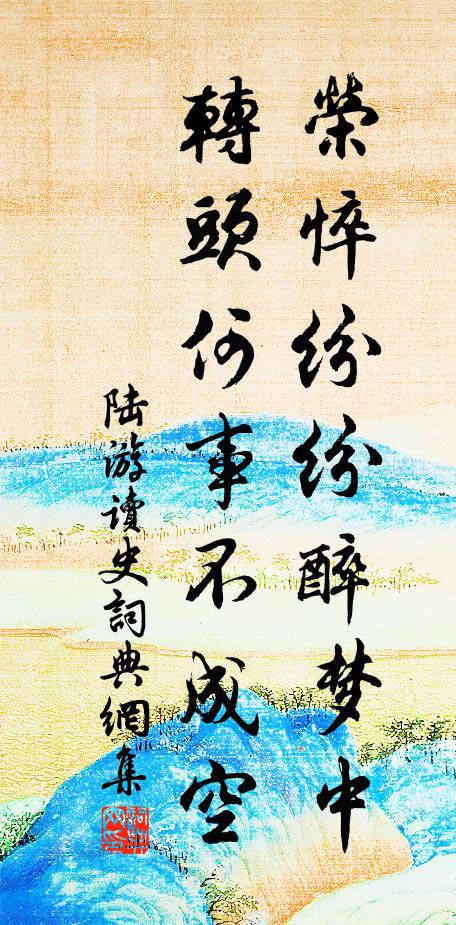 榮悴纷纷醉梦中
轉頭何事不成空
陆游讀史詞典網集